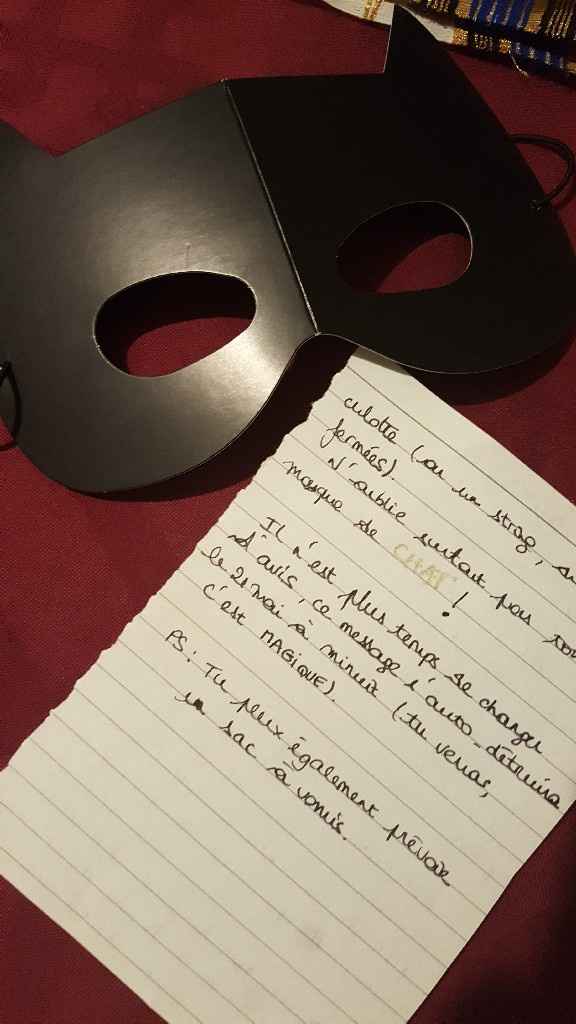 culotte (ou un strag, su
fermées).
N'oublie surtout pas ton
masque de CHAT !
Il n'est plus temps de changer
d'avis, ce message s'auto-détruira
le 21 mai à minuit (tu verras,
c'est MAGIQUE).
PS: Tu peux également prévoir
un sac à vomis.